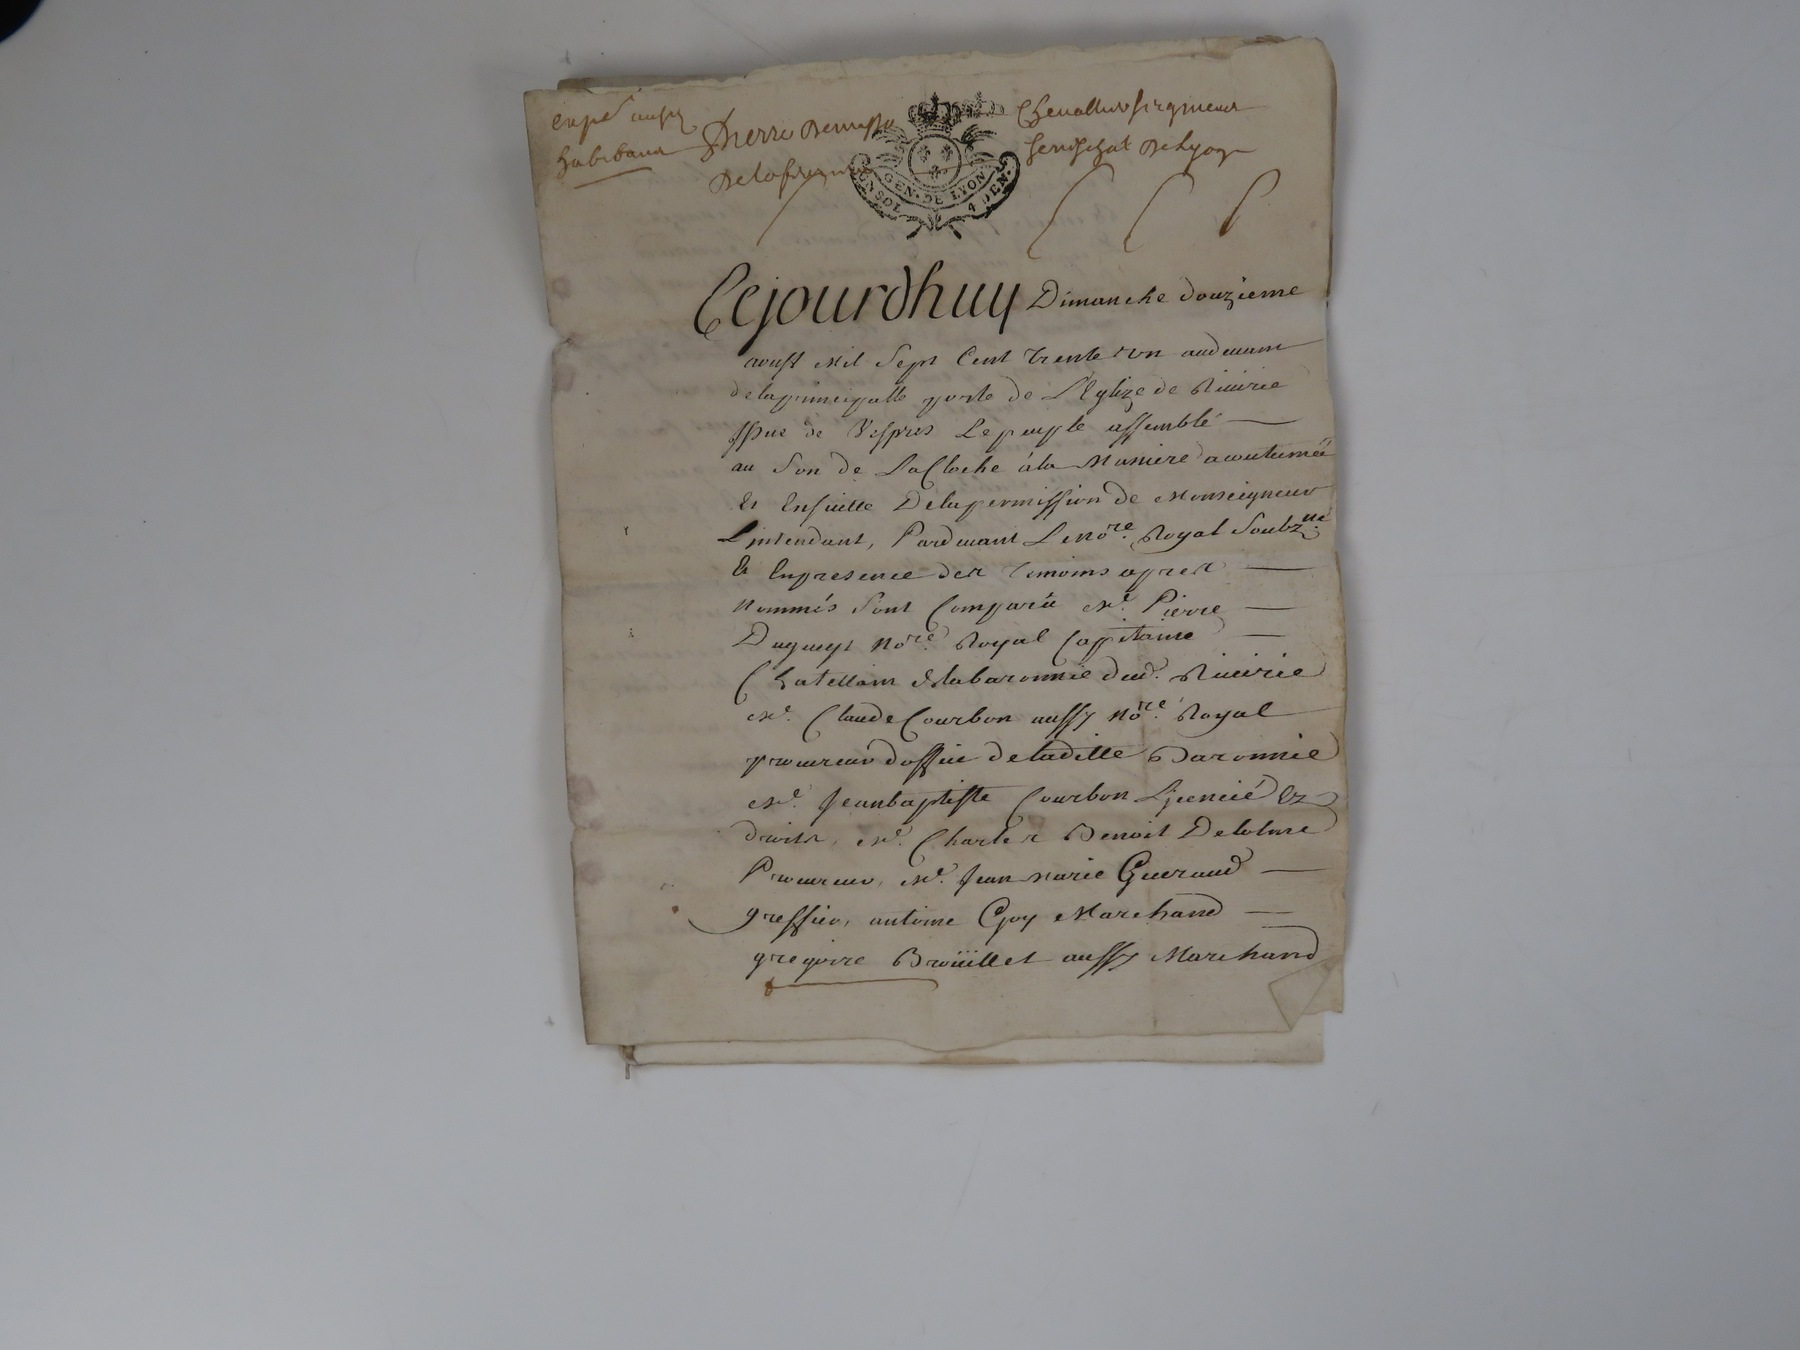 expé aux
habitans
Pierre Demasso
Chevallier seigneur
Delaferrière
Senéchal de Lyon
GEN. DE LYON
UN SOL 4 DEN.
Cejourdhuy Dimanche douzieme
aoust Mil Sept Cent trente un audevant
delaprincipalle porte de L'Eglize de Riuirie
issue de Vespres Lepeuple assemblé
au Son de LaCloche à la Maniere acoutumée
Et Ensuitte Delapermission de Monseigneur
L'intendant, Pardeuant Le Nore. Royal Soubzné
Et Enpresence des temoins apres
Nommés Sont Comparu Me. Pierre
Dugueyt Nore. Royal Cappitaine
Chatellain delabaronnie dud. Riuirie
Me. Claude Courbon aussy Nore. Royal
procureur doffice deladitte Baronnie
Me. Jeanbaptiste Courbon Licencié Ez
droits, Me. Charles Benoit Delolme
Procureur, Me. Jean Marie Gueraud
greffier, antoine Goy Marchand
gregoire Broüillet aussy Marchand